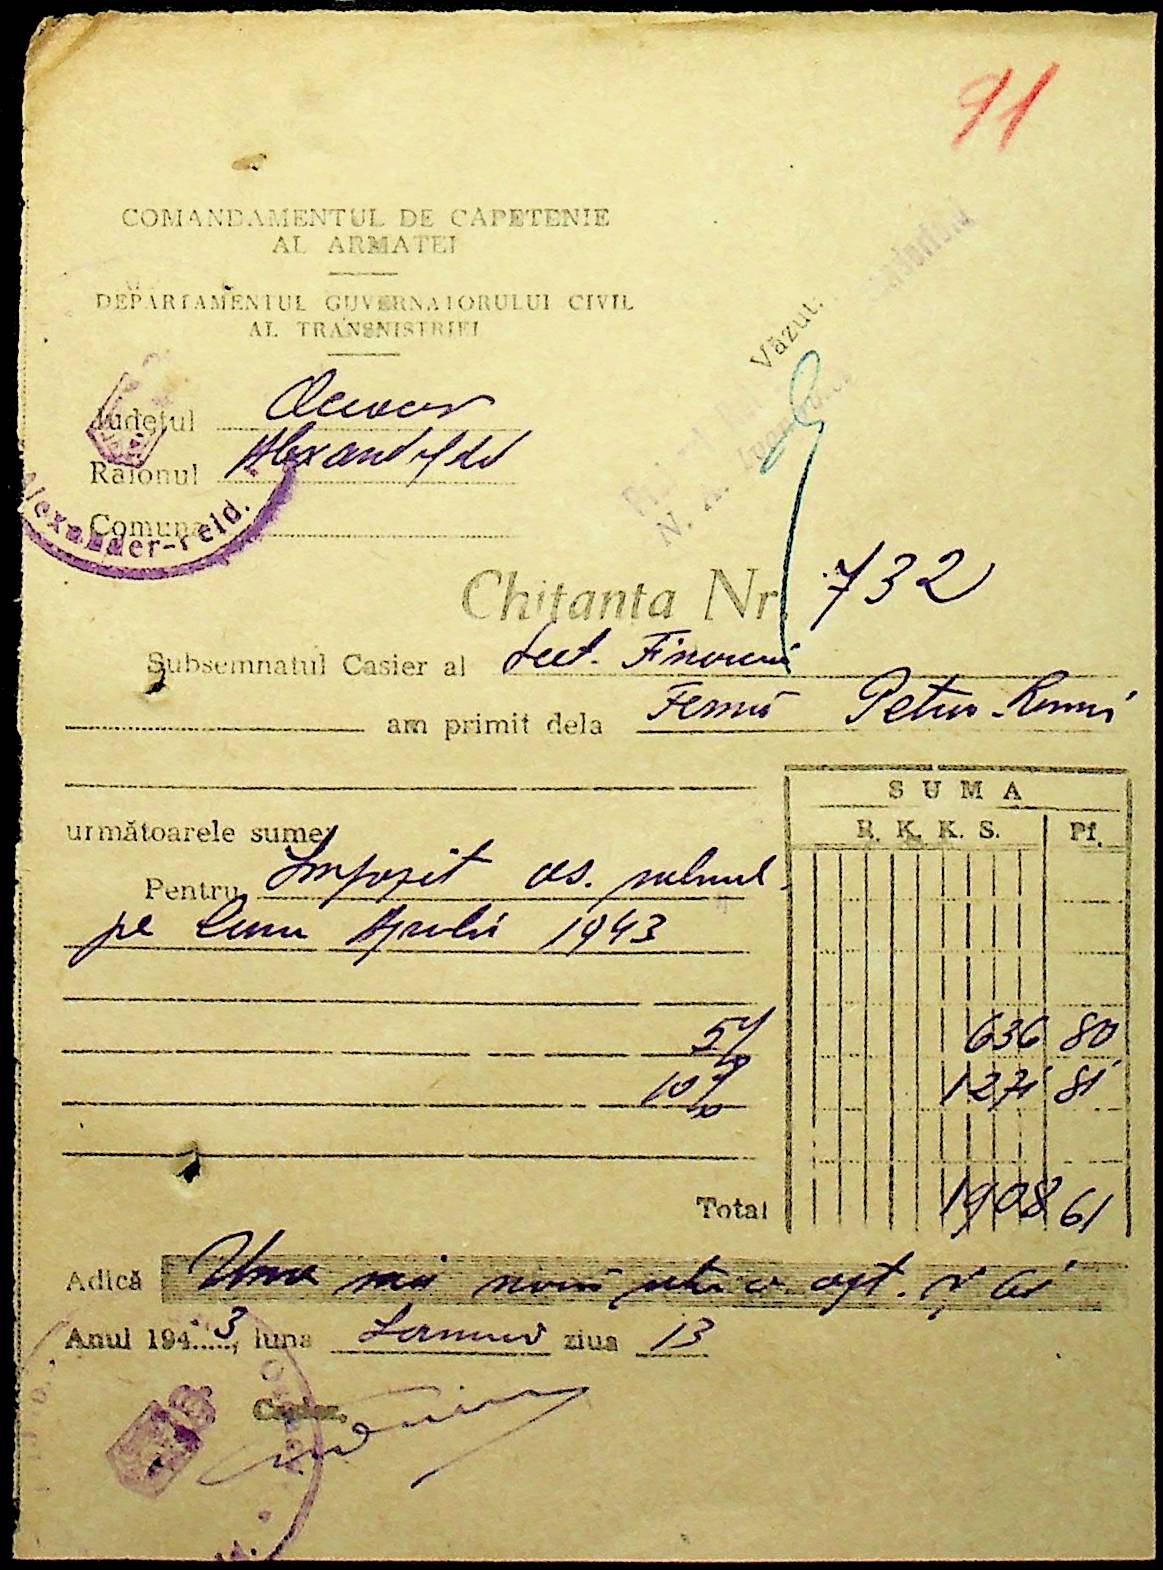 91
COMANDAMENTUL DE CAPETENIE
AL ARMATEI
DEPARTAMENTUL GUVERNATORULUI CIVIL
AL TRANSNISTRIEI
Văzut,
Județul
Raionul Alexandrfeld
Comuna
Alexander-Feld.
Chitanta Nr. 732
Subsemnatul Casier al Sect. Financiar
am primit dela Ferma Petru
SUMA
R. K. K. S. Pf.
următoarele sume:
Pentru Impozit as.
pe luna Aprilie 1943
5% 636 80
10% 1271 81
Total 1908 61
Adică Una mii nouă sute opt
Anul 1943, luna ziua 13
Casier,